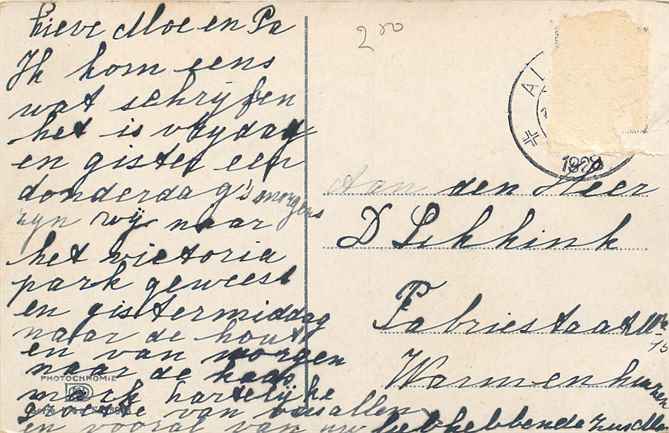 Lieve Moe en Pa
Ik kom eens
wat schrijfen
het is vrydag
en gister een
donderdag 'smorgens
zyn wij naar
het victoria
park geweest
en gistermiddag
naar de hout
en van morgen
naar de kaas
mark hartelijke
groete van ons allen
en vooral van uw liefhebbende
PHOTOCHROMIE
200
AL
1929
Aan den Heer
D Lekkink
Fabriestaat
Warmenhuizen